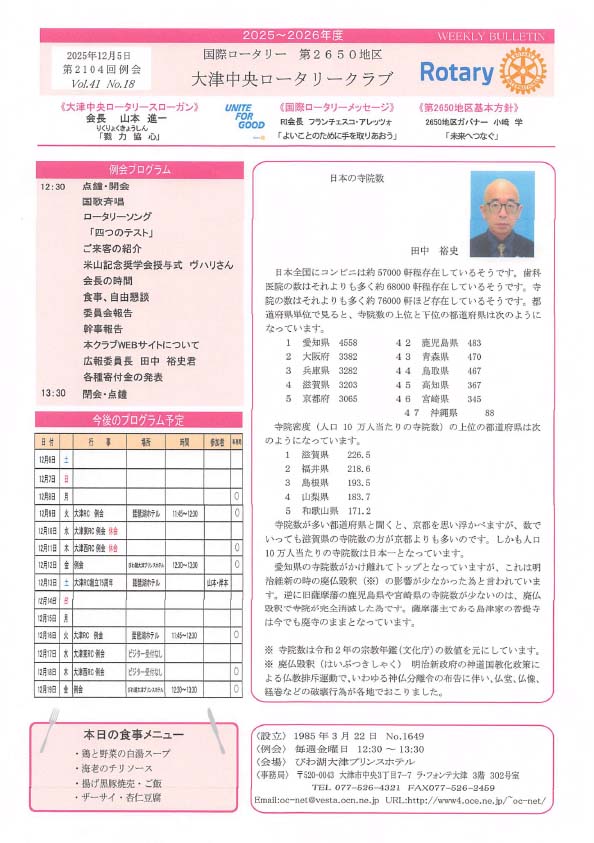 2025～2026年度
WEEKLY BULLETIN
2025年12月5日
第2104回例会
Vol.41 No.18
国際ロータリー 第2650地区
大津中央ロータリークラブ
Rotary
《大津中央ロータリースローガン》
会長 山本 進一
りくりょくきょうしん
「戮力協心」
UNITE
FOR
GOOD
《国際ロータリーメッセージ》
RI会長 フランチェスコ・アレッツォ
「よいことのために手を取りあおう」
《第2650地区基本方針》
2650地区ガバナー 小﨑 学
「未来へつなぐ」
例会プログラム
12:30 点鐘・開会
国歌斉唱
ロータリーソング
「四つのテスト」
ご来客の紹介
米山記念奨学会授与式 ヴハリさん
会長の時間
食事、自由懇談
委員会報告
幹事報告
本クラブWEBサイトについて
広報委員長 田中 裕史君
各種寄付金の発表
13:30 閉会・点鐘
今後のプログラム予定
日付 行事 場所 時間 参加者 事務局
12月6日 土
12月7日 日
12月8日 月 ○
12月9日 火 大津RC 例会 琵琶湖ホテル 11:45～12:30 ○
12月10日 水 大津東RC 例会 休会
12月11日 木 大津西RC 例会 休会 ○
12月12日 金 例会 びわ湖大津プリンスホテル 12:30～13:30 ○
12月13日 土 大津RC創立75周年 琵琶湖ホテル 山本・岸本
12月14日 日
12月15日 月
12月16日 火 大津RC 例会 琵琶湖ホテル 11:45～12:30 ○
12月17日 水 大津東RC 例会 ビジター受付なし
12月18日 木 大津西RC 例会 ビジター受付なし ○
12月19日 金 例会 びわ湖大津プリンスホテル 12:30～13:30 ○
本日の食事メニュー
・鶏と野菜の白湯スープ
・海老のチリソース
・揚げ黒豚焼売・ご飯
・ザーサイ・杏仁豆腐
日本の寺院数
田中 裕史
日本全国にコンビニは約57000軒程存在しているそうです。歯科
医院の数はそれよりも多く約68000軒程存在しているそうです。寺
院の数はそれよりも多く約76000軒ほど存在しているそうです。都
道府県単位で見ると、寺院数の上位と下位の都道府県は次のように
なっています。
1 愛知県 4558 42 鹿児島県 483
2 大阪府 3382 43 青森県 470
3 兵庫県 3282 44 鳥取県 467
4 滋賀県 3203 45 高知県 367
5 京都府 3065 46 宮崎県 345
47 沖縄県 88
寺院密度（人口10万人当たりの寺院数）の上位の都道府県は次
のようになっています。
1 滋賀県 226.5
2 福井県 218.6
3 島根県 193.5
4 山梨県 183.7
5 和歌山県 171.2
寺院数が多い都道府県と聞くと、京都を思い浮かべますが、数で
いっても滋賀県の寺院の方が京都よりも多いのです。しかも人口
10万人当たりの寺院数は日本一となっています。
愛知県の寺院数がかけ離れてトップとなっていますが、これは明
治維新の時の廃仏毀釈（※）の影響が少なかった為と言われていま
す。逆に旧薩摩藩の鹿児島県や宮崎県の寺院数が少ないのは、廃仏
毀釈で寺院が完全消滅した為です。薩摩藩主である島津家の菩提寺
は今でも廃寺のままとなっています。
※ 寺院数は令和2年の宗教年鑑（文化庁）の数値を元にしています。
※ 廃仏毀釈（はいぶつきしゃく） 明治新政府の神道国教化政策によ
る仏教排斥運動で、いわゆる神仏分離令の布告に伴い、仏堂、仏像、
経巻などの破壊行為が各地でおこりました。
〈設立〉 1985年3月22日 No.1649
〈例会〉 毎週金曜日 12:30～13:30
〈会場〉 びわ湖大津プリンスホテル
〈事務局〉 〒520-0043 大津市中央3丁目7-7 ラ・フォンテ大津 3階 302号室
TEL 077-526-4321 FAX077-526-2459
Email:oc-net@vesta.ocn.ne.jp URL:http://www4.oce.ne.jp/~oc-net/